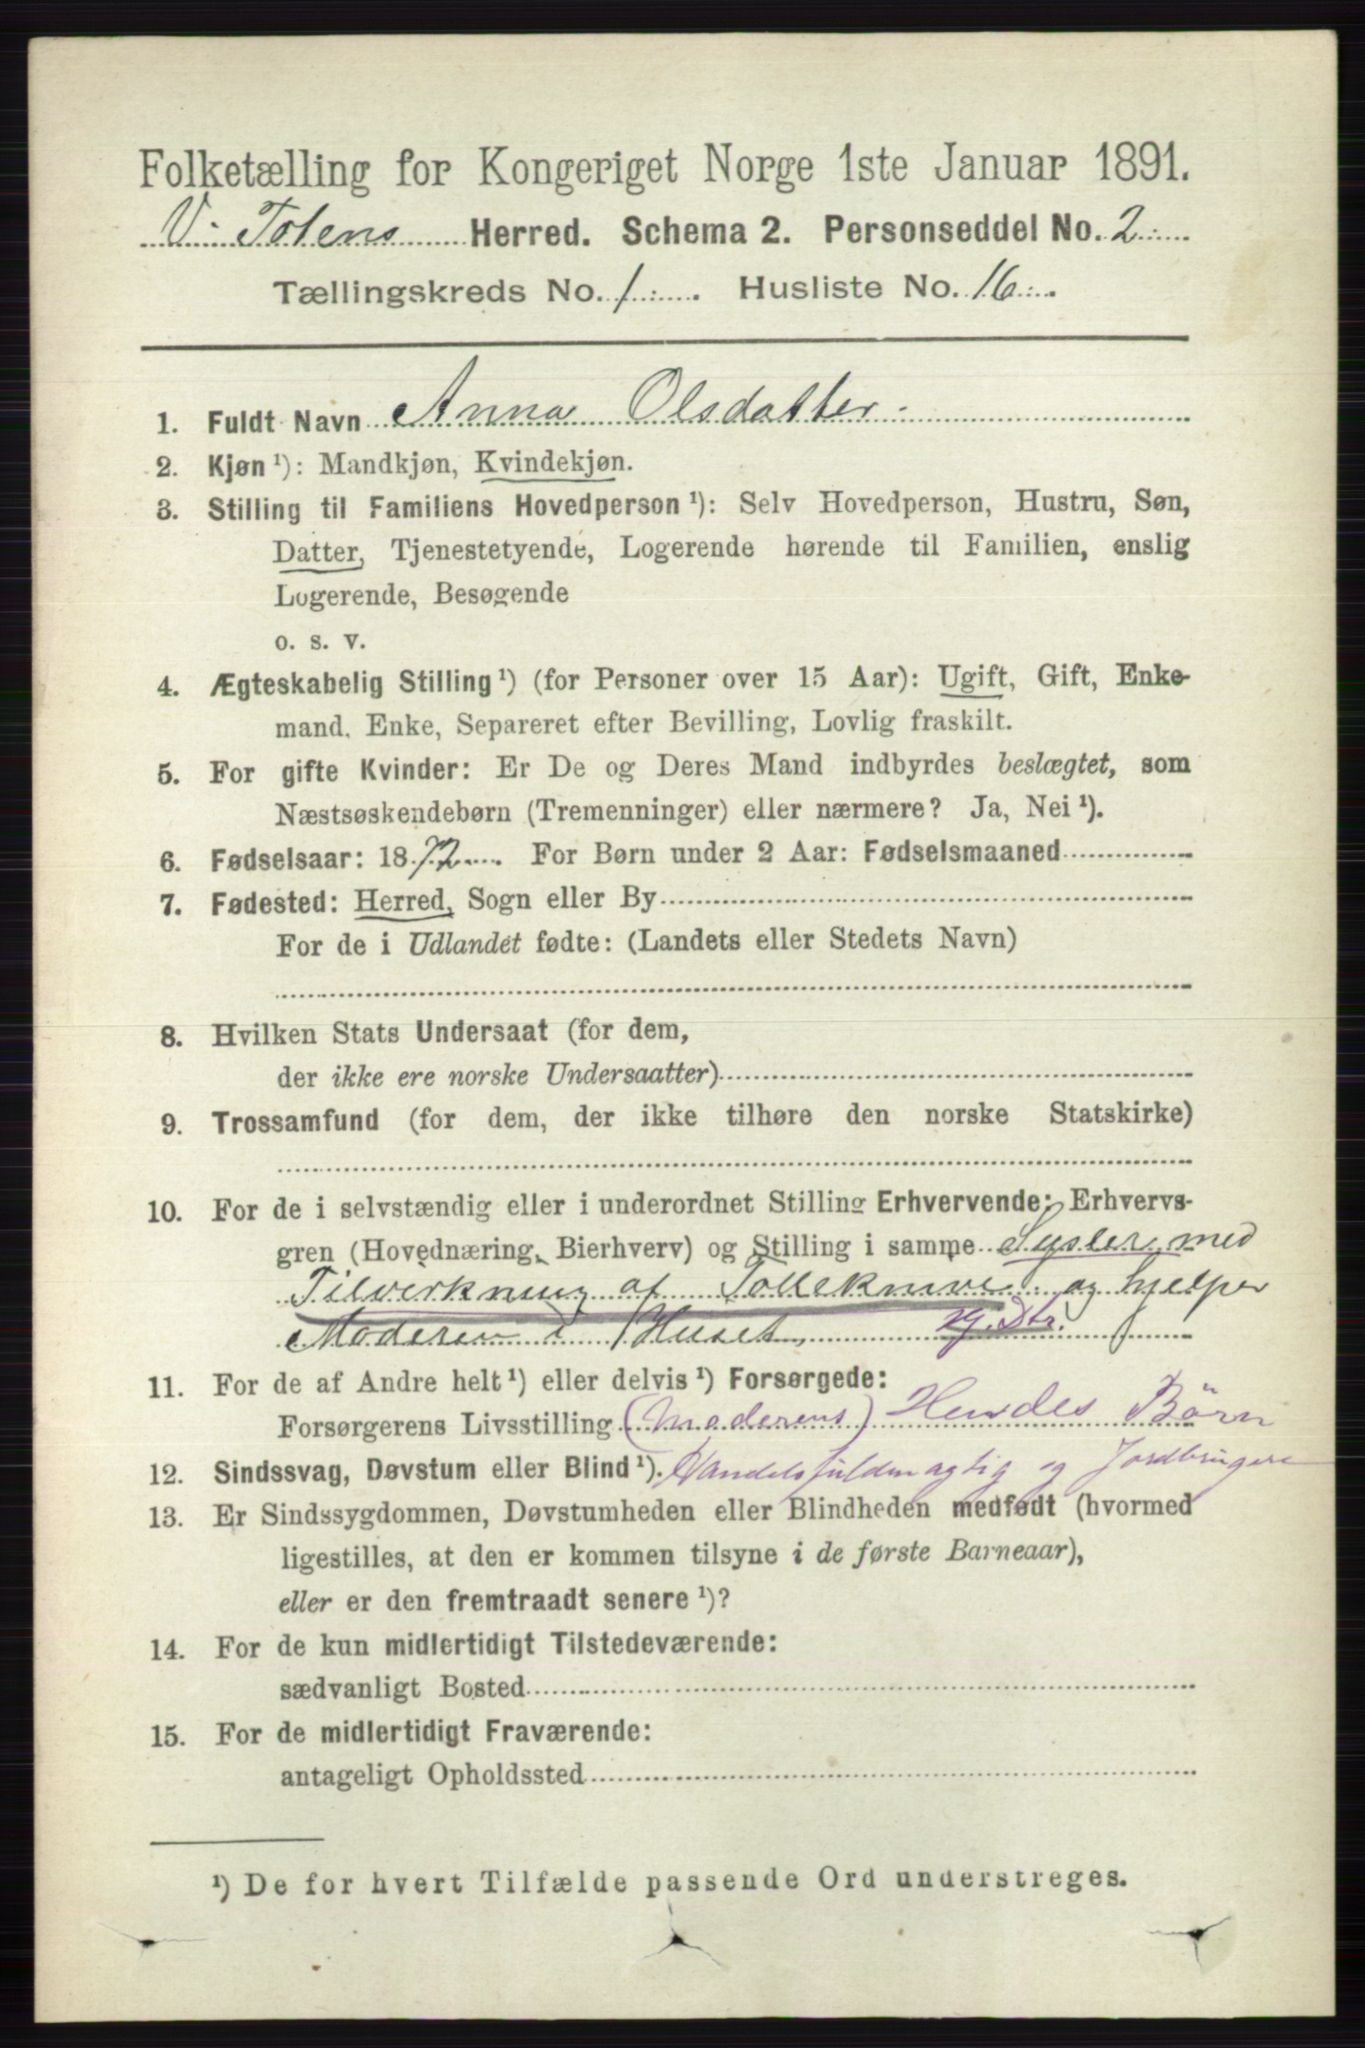 Folketælling for Kongeriget Norge 1ste Januar 1891.
V. Totens Herred. Schema 2. Personseddel No. 2
Tællingskreds No. 1. Husliste No. 16.
1. Fuldt Navn Anna Olsdatter
2. Kjøn ¹): Mandkjøn, Kvindekjøn.
3. Stilling til Familiens Hovedperson ¹): Selv Hovedperson, Hustru, Søn,
Datter, Tjenestetyende, Logerende hørende til Familien, enslig
Logerende, Besøgende
o. s. v.
4. Ægteskabelig Stilling ¹) (for Personer over 15 Aar): Ugift, Gift, Enke-
mand, Enke, Separeret efter Bevilling, Lovlig fraskilt.
5. For gifte Kvinder: Er De og Deres Mand indbyrdes beslægtet, som
Næstsøskendebørn (Tremenninger) eller nærmere? Ja, Nei ¹).
6. Fødselsaar: 1872. For Børn under 2 Aar: Fødselsmaaned
7. Fødested: Herred, Sogn eller By
For de i Udlandet fødte: (Landets eller Stedets Navn)
8. Hvilken Stats Undersaat (for dem,
der ikke ere norske Undersaatter)
9. Trossamfund (for dem, der ikke tilhøre den norske Statskirke)
10. For de i selvstændig eller i underordnet Stilling Erhvervende: Erhvervs-
gren (Hovednæring, Bierhverv) og Stilling i samme Sysler med
Tilvirkning af Tolleknive og hjelper
Moderen i Huset, Dtr.
11. For de af Andre helt ¹) eller delvis ¹) Forsørgede:
Forsørgerens Livsstilling (Moderens) Hendes Börn
12. Sindssvag, Døvstum eller Blind ¹). Handelsfuldmægtig og Jordbrugere
13. Er Sindssygdommen, Døvstumheden eller Blindheden medfødt (hvormed
ligestilles, at den er kommen tilsyne i de første Barneaar),
eller er den fremtraadt senere ¹)?
14. For de kun midlertidigt Tilstedeværende:
sædvanligt Bosted
15. For de midlertidigt Fraværende:
antageligt Opholdssted
¹) De for hvert Tilfælde passende Ord understreges.